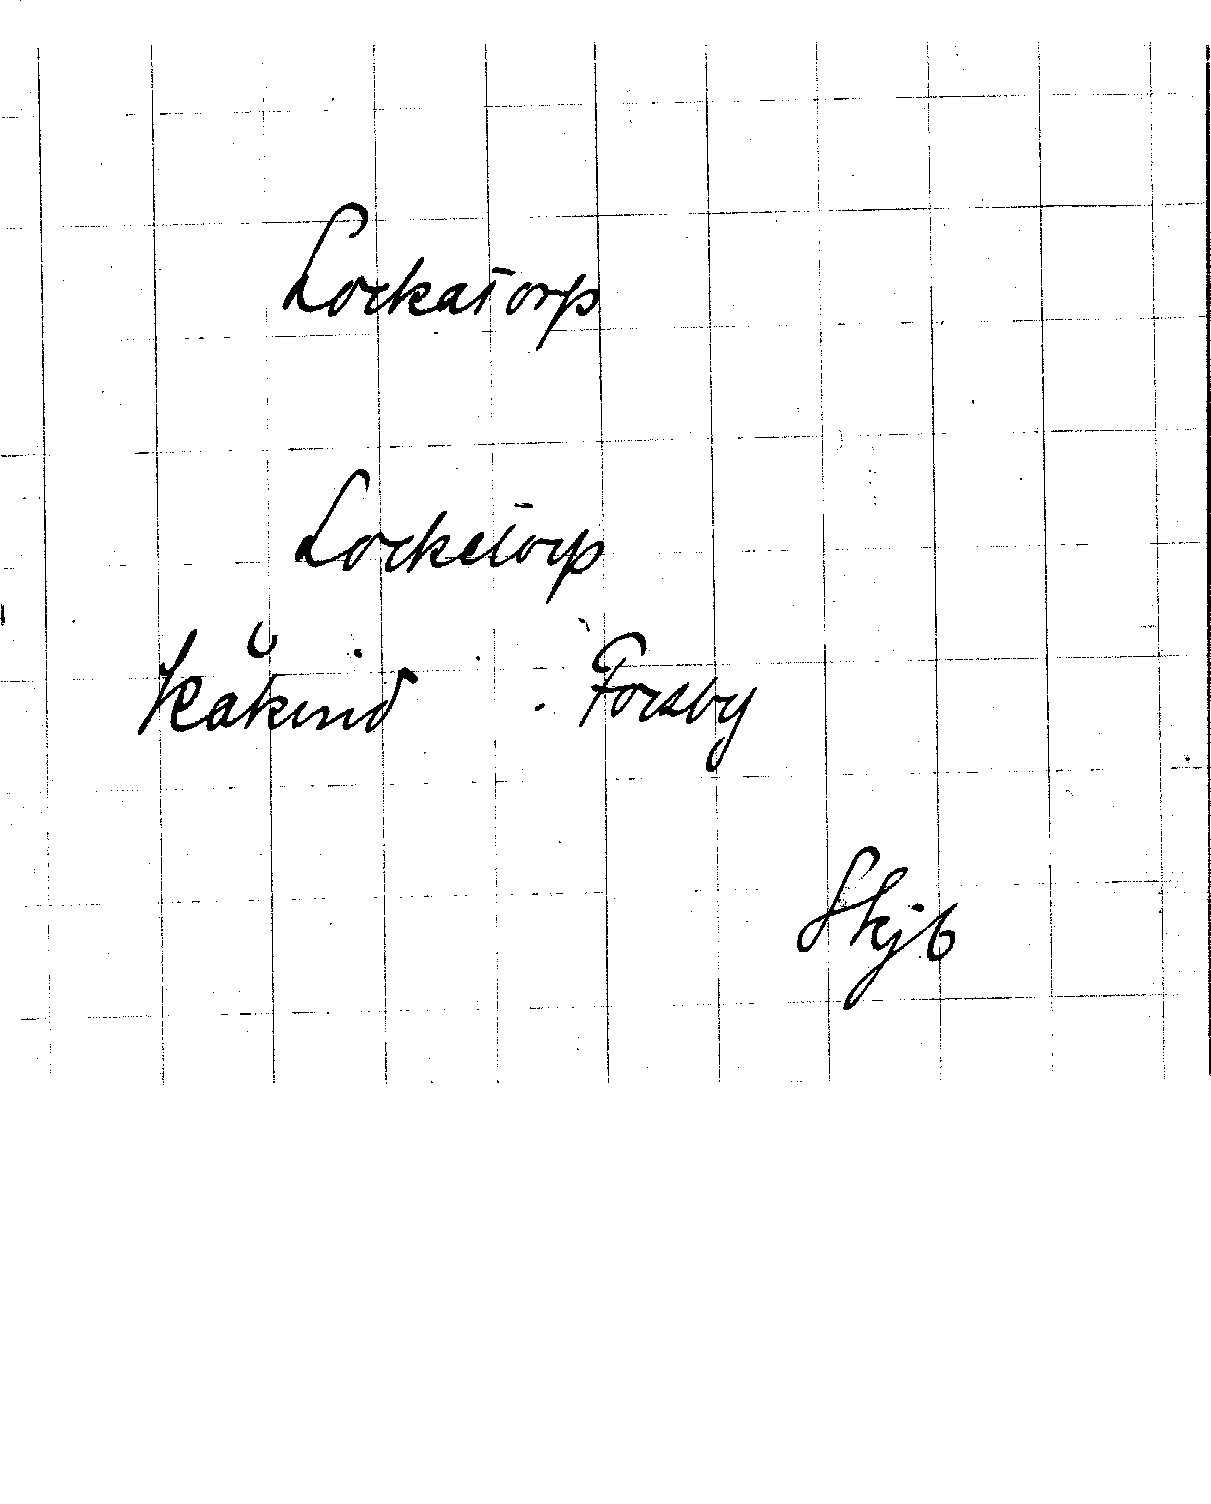 Lockatorp
Locketorp
Kåkind Forsby
Skjb